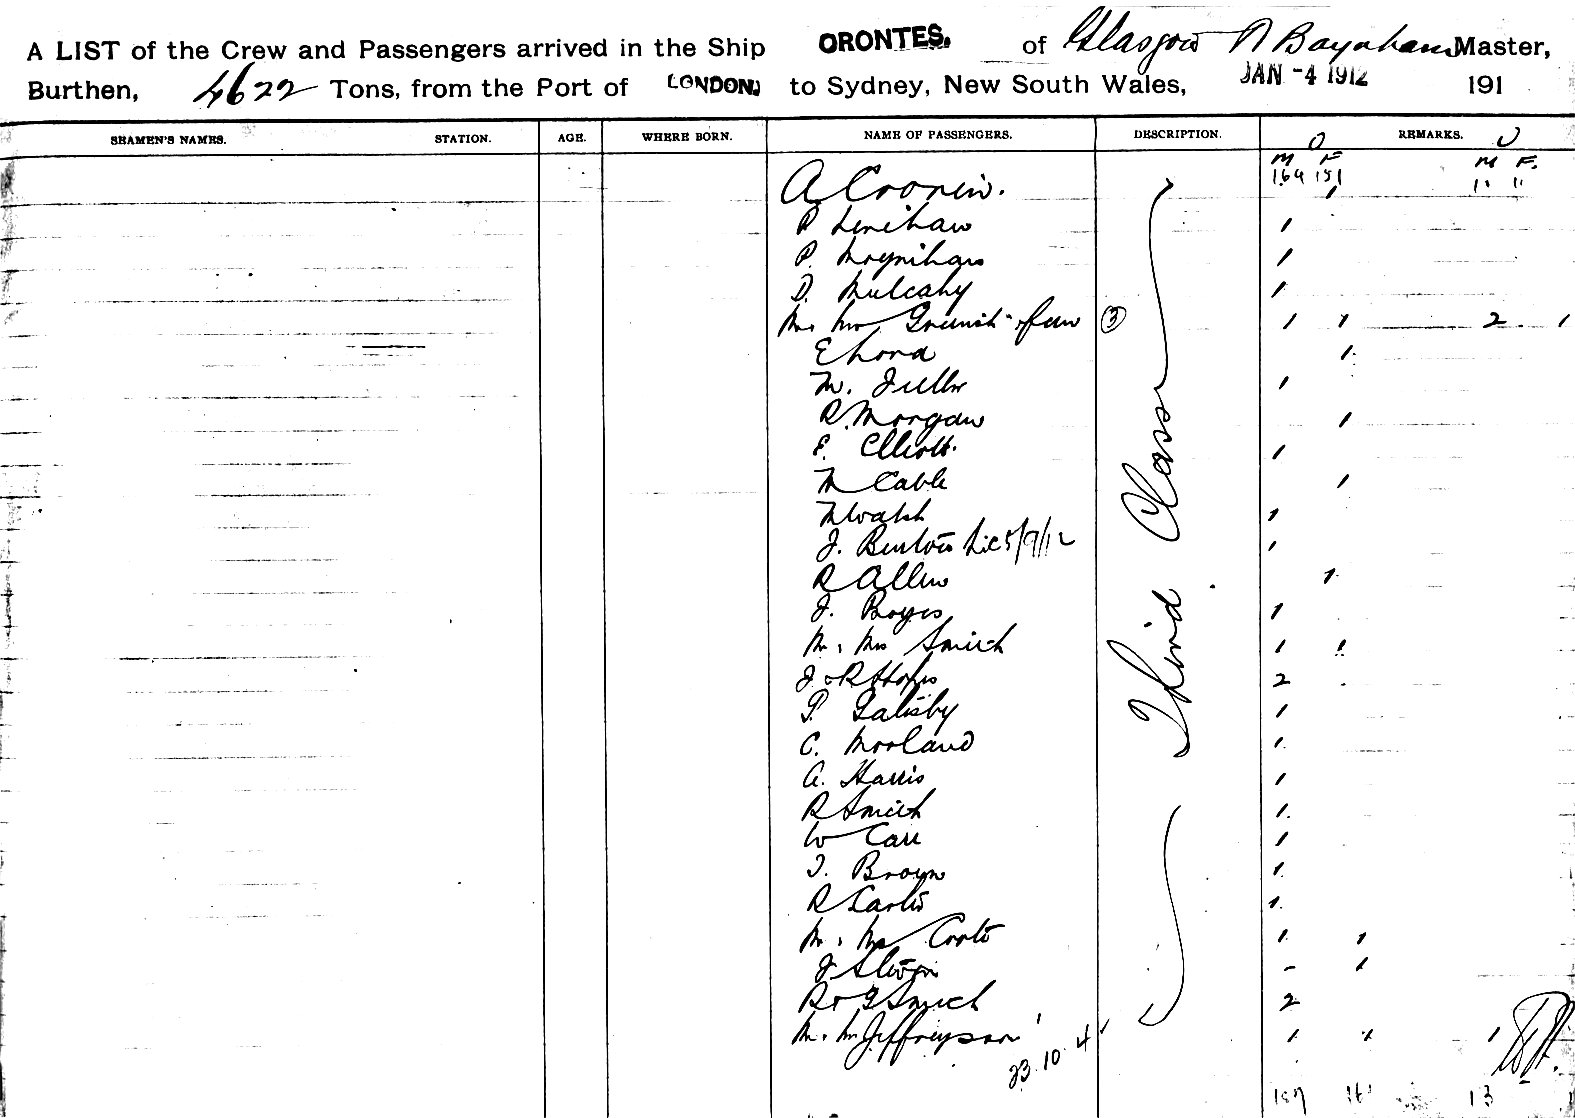 A LIST of the Crew and Passengers arrived in the Ship ORONTES. of Glasgow Baynham Master,
Burthen, 4622 Tons, from the Port of LONDON, to Sydney, New South Wales, JAN -4 1912 191
SEAMEN'S NAMES. STATION. AGE. WHERE BORN. NAME OF PASSENGERS. DESCRIPTION. REMARKS.
M F M F.
A Cronin. 1
P Lenihan 1
P. Moynihan 1
D. Mulcahy 1
Mr. Mrs 3 1 1 2 1
E Lord 1
M. 1
R. Morgan 1
E. Elliott. 1
M Cable 1
M Walsh 1
J. 5/9/12 1
R Allen 1
J. Boyes 1
Mr. Mrs Smith 1 1
J & R 2
Third Class
1
C. Moorland 1
A. Harris 1
R Smith 1
W Carr 1
1
R 1
Mr. Mrs 1 1
J - 1
R & G Smith 2
Mr. Mr Jeffreyson 1 1 1
23. 10. 4
13